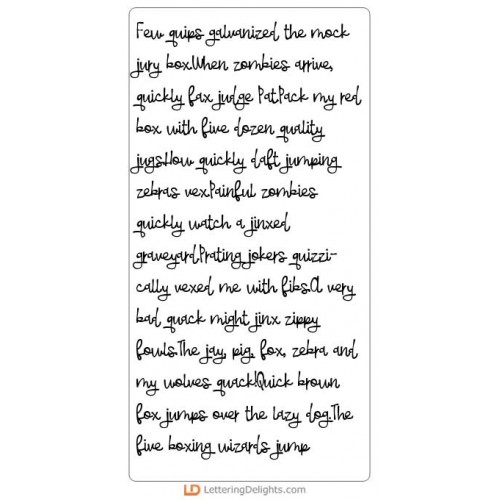 Few quips galvanized the mock
jury box.When zombies arrive,
quickly fax judge Pat.Pack my red
box with five dozen quality
jugs.How quickly daft jumping
zebras vex.Painful zombies
quickly watch a jinxed
graveyard.Prating jokers quizzi-
cally vexed me with fibs.A very
bad quack might jinx zippy
fowls.The jay, pig, fox, zebra and
my wolves quack!Quick brown
fox jumps over the lazy dog.The
five boxing wizards jump
LD LetteringDelights.com